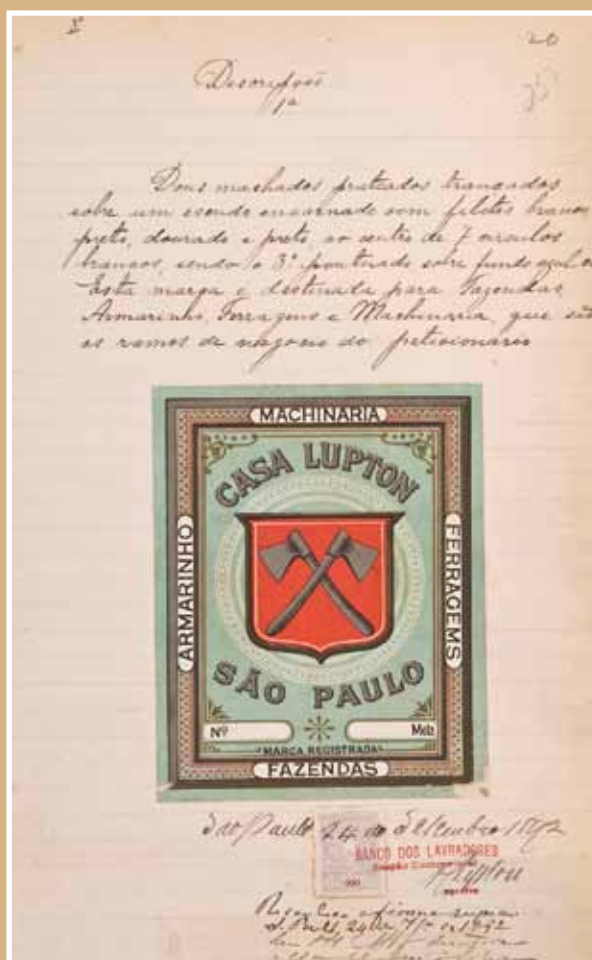 20
1ª
Dous machados prateados trançados
sobre um escudo encarnado com filetes branco
preto, dourado e preto, ao centro de 7 circulos
brancos, sendo o 3º pontuado sobre fundo azul
Esta marca é destinada para Fazendas
Armarinho, Ferragens e Machinaria, que são
os ramos de negocio do peticionario
MACHINARIA
CASA LUPTON
ARMARINHO
FERRAGEMS
SÃO PAULO
Nº
Mets
MARCA REGISTRADA
FAZENDAS
São Paulo 24 de Setembro 1892
BANCO DOS LAVRADORES
Lupton
a firma supra
S. Paulo, 24 de 1892